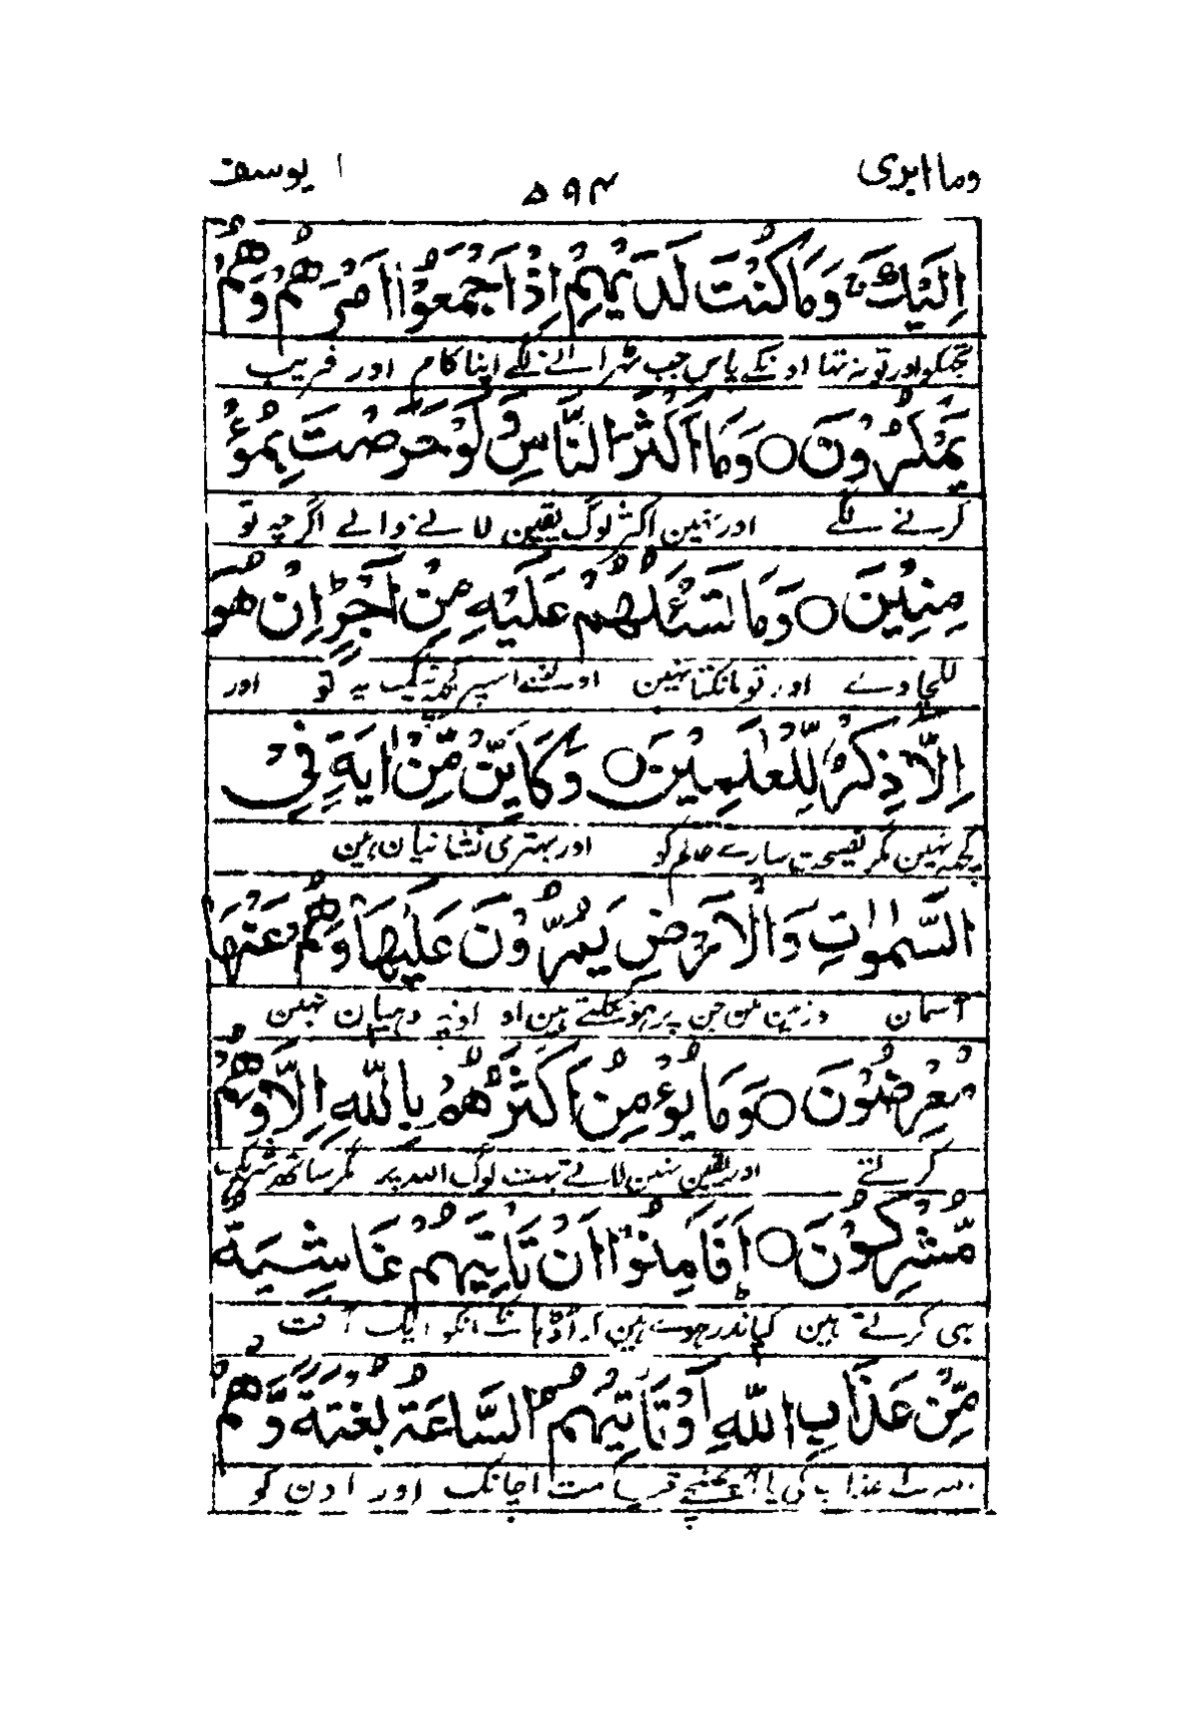 وما ابری ۵۹۴ یوسف ۱
اِلَيْكَ ۚ وَمَا كُنْتَ لَدَيْهِمْ اِذْ اَجْمَعُوْٓا اَمْرَهُمْ وَهُمْ
تجھکو اور تو نہ تہا اونکے پاس جب ٹھرانے لگے اپنا کام اور فریب
يَمْكُرُوْنَ ○ وَمَآ اَكْثَرُ النَّاسِ وَلَوْ حَرَصْتَ بِمُؤْ
کرنے لگے اور نہین اکثر لوگ یقین لانے والے اگرچہ تو
مِنِيْنَ ○ وَمَا تَسْـَٔلُهُمْ عَلَيْهِ مِنْ اَجْرٍ ؕ اِنْ هُوَ
للچاوے اور تو مانگتا نہین اونسے اسپر کچھ نیگ یہ تو اور
اِلَّا ذِكْرٌ لِّلْعٰلَمِيْنَ ○ وَكَاَيِّنْ مِّنْ اٰيَةٍ فِى
کچھ نہین مگر نصیحت سارے عالم کو اور بہتری نشانیان ہین
السَّمٰوٰتِ وَالْاَرْضِ يَمُرُّوْنَ عَلَيْهَا وَهُمْ عَنْهَا
آسمان و زمین مین جن پر ہو نکلتے ہین اور اونپہ دہیان نہین
مُعْرِضُوْنَ ○ وَمَا يُؤْمِنُ اَكْثَرُهُمْ بِاللّٰهِ اِلَّا وَهُمْ
کرتے اور یقین نہین لاتے بہت لوگ اللہ پر مگر ساتھ شریک
مُّشْرِكُوْنَ ○ اَفَاَمِنُوْٓا اَنْ تَاْتِيَهُمْ غَاشِيَةٌ
بہی کرتے ہین کیا نڈر ہوے ہین کہ آ ڈہانکے انکو ایک آفت
مِّنْ عَذَابِ اللّٰهِ اَوْ تَاْتِيَهُمُ السَّاعَةُ بَغْتَةً وَّهُمْ
اللہ کے عذاب کی یا آ پہنچے قیامت اچانک اور اون کو